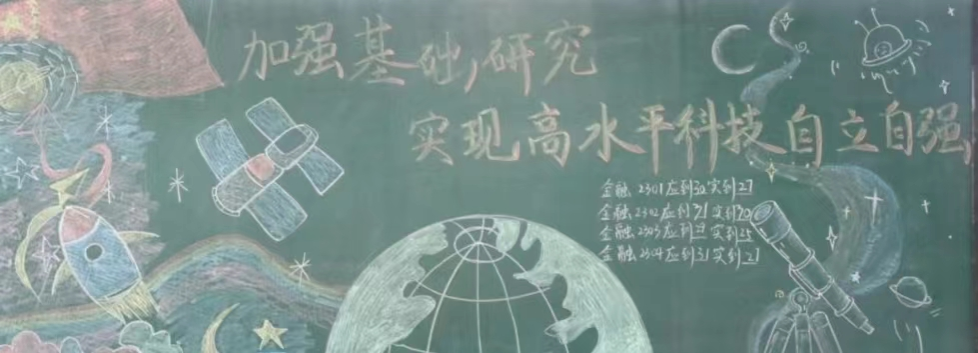 加强基础研究
实现高水平科技自立自强
金融2301应到30实到27
金融2302应到31实到30
金融2303应到 实到25
金融2304应到31实到21